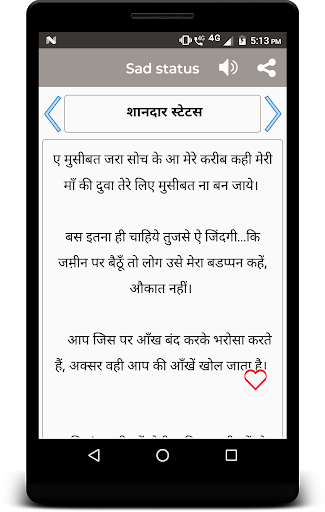 4G 4G 5:13 PM
Sad status
शानदार स्टेटस
ए मुसीबत जरा सोच के आ मेरे करीब कही मेरी
माँ की दुवा तेरे लिए मुसीबत ना बन जाये।
बस इतना ही चाहिये तुजसे ऐ जिंदगी...कि
जमी़न पर बैठूँ तो लोग उसे मेरा बडप्पन कहें,
औकात नहीं।
आप जिस पर आँख बंद करके भरोसा करते
हैं, अक्सर वही आप की आँखें खोल जाता है।